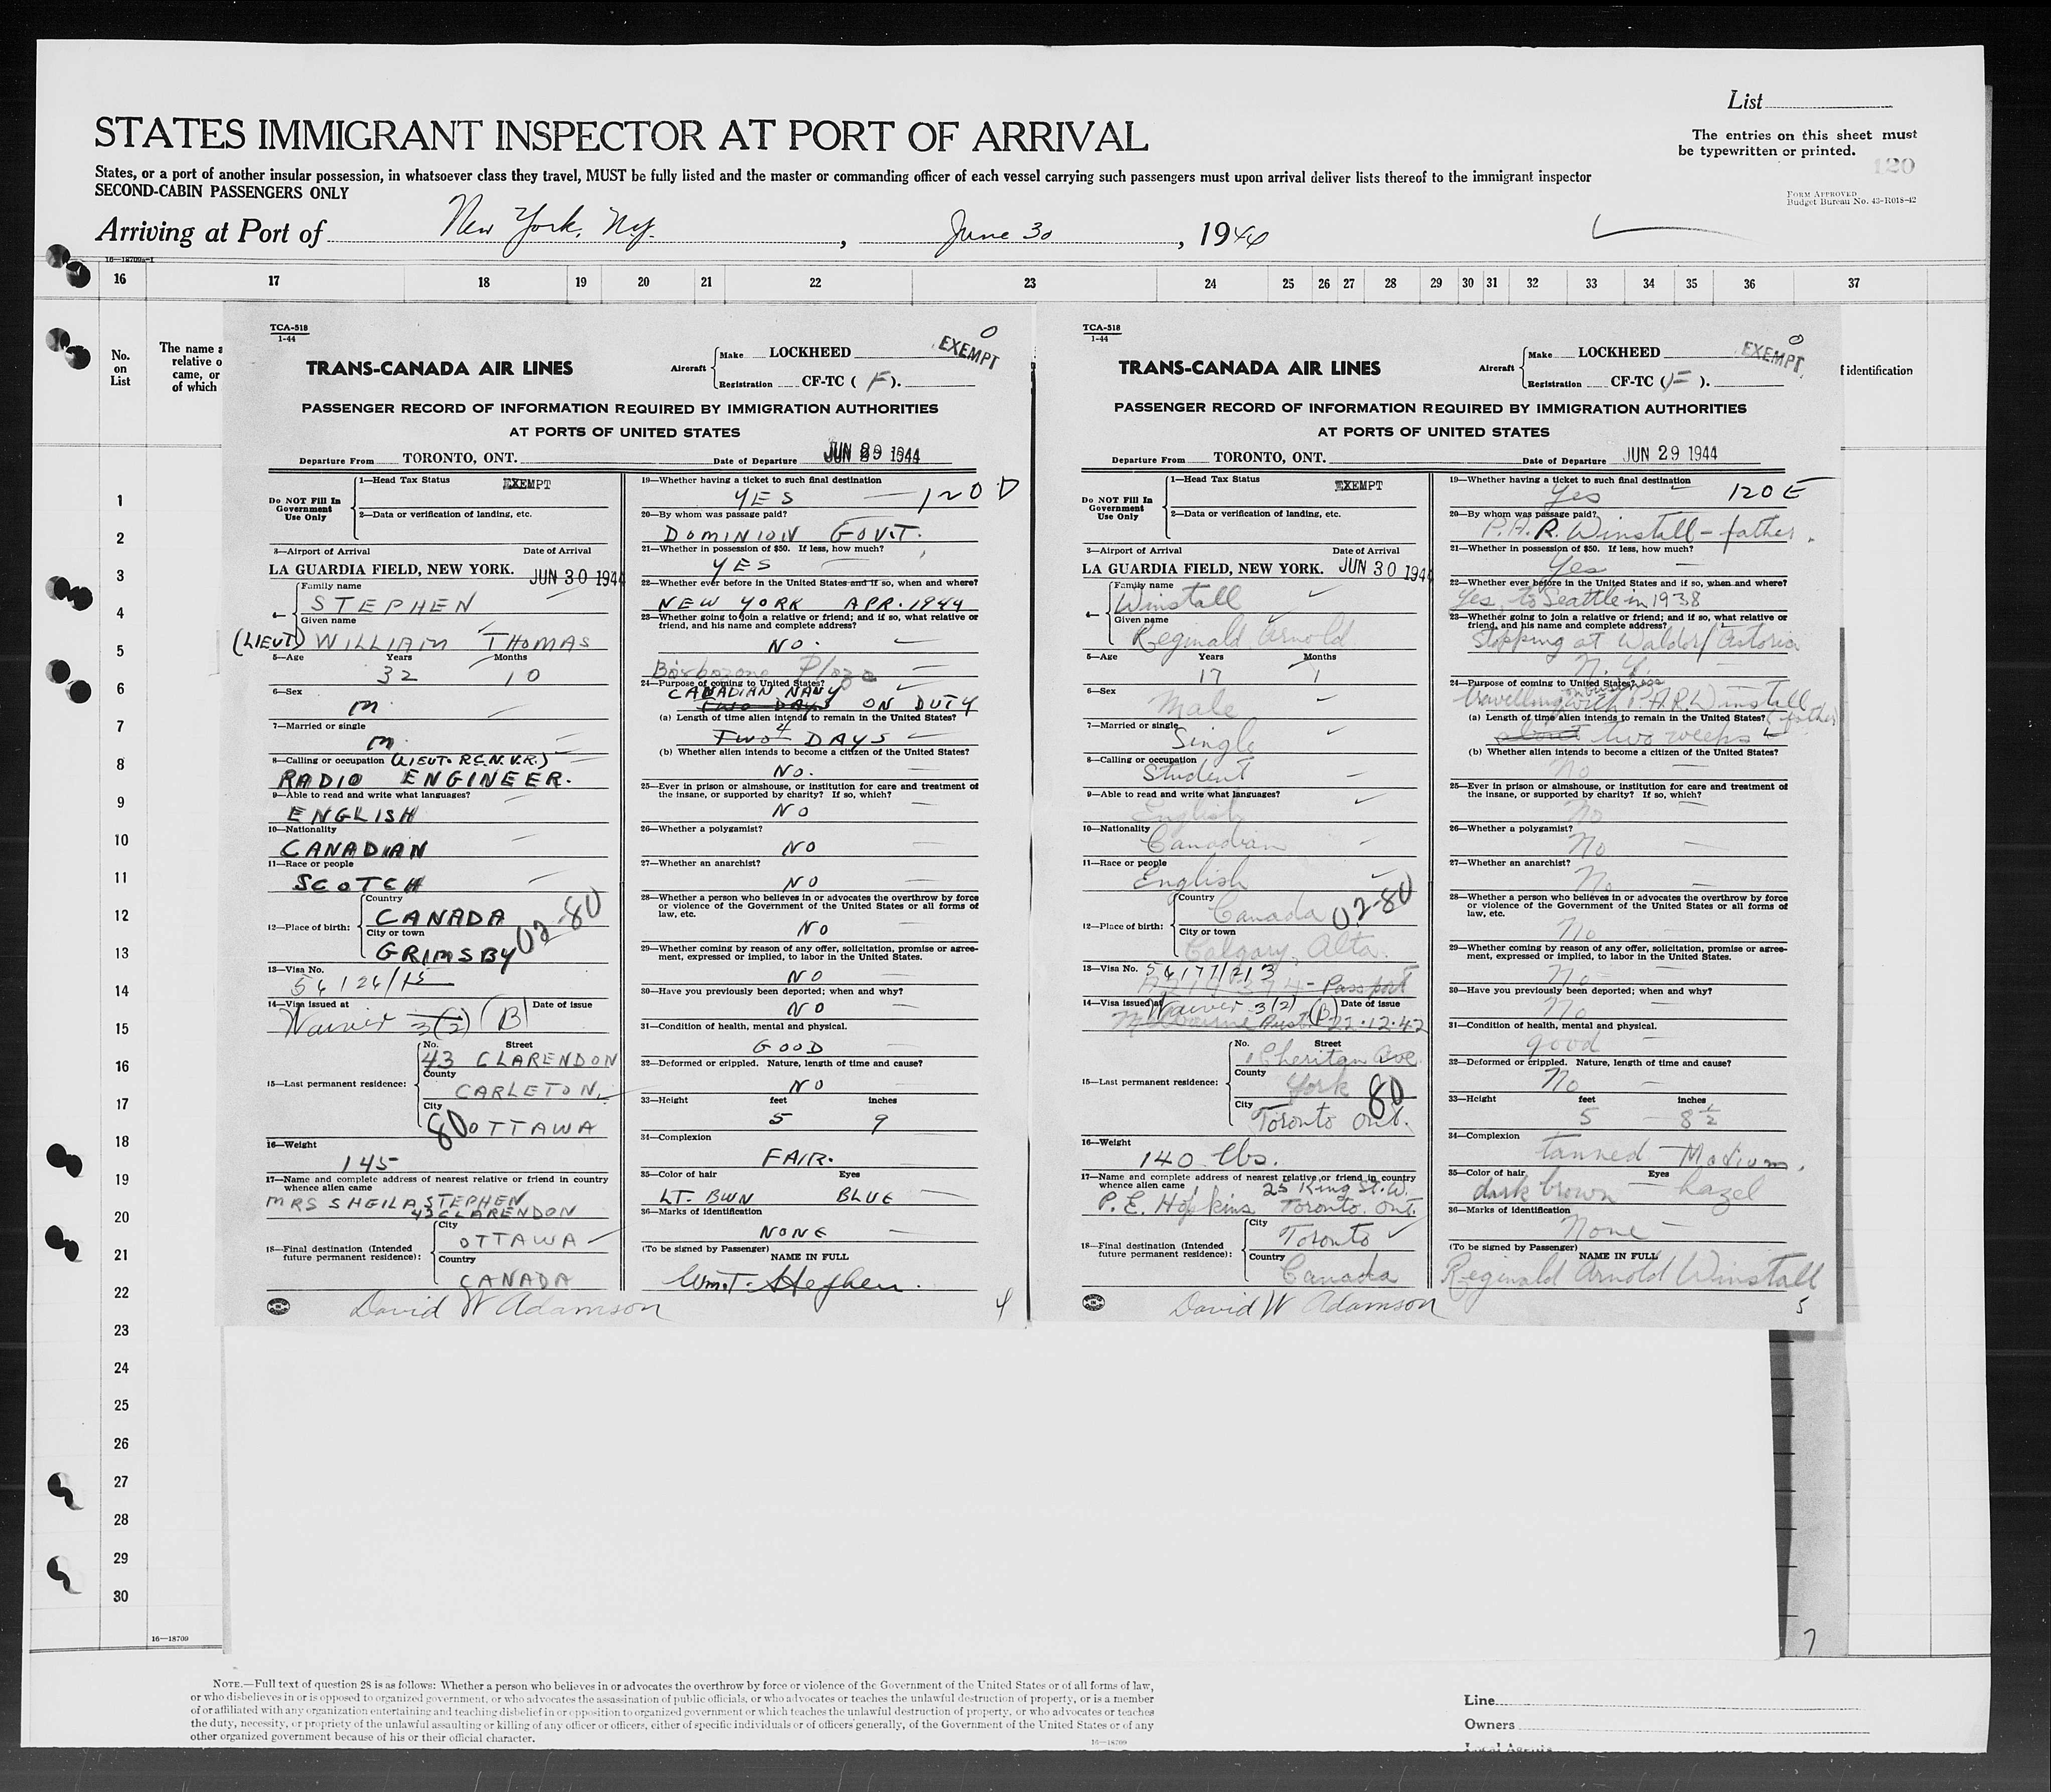 List
STATES IMMIGRANT INSPECTOR AT PORT OF ARRIVAL
The entries on this sheet must
be typewritten or printed.
120
States, or a port of another insular possession, in whatsoever class they travel, MUST be fully listed and the master or commanding officer of each vessel carrying such passengers must upon arrival deliver lists thereof to the immigrant inspector
SECOND-CABIN PASSENGERS ONLY
FORM APPROVED
Budget Bureau No. 43-R018-42
Arriving at Port of New York, N.Y. , June 30 , 1944
16—18709a-1
16 17 18 19 20 21 22 23 24 25 26 27 28 29 30 31 32 33 34 35 36 37
No.
on
List
The name a
relative o
came, or
of which
f identification
1
2
3
4
5
6
7
8
9
10
11
12
13
14
15
16
17
18
19
20
21
22
23
24
25
26
27
28
29
30
16—18709
TCA-518
1-44
TRANS-CANADA AIR LINES
Aircraft
Make LOCKHEED
Registration CF-TC ( F ).
0
EXEMPT
PASSENGER RECORD OF INFORMATION REQUIRED BY IMMIGRATION AUTHORITIES
AT PORTS OF UNITED STATES
Departure From TORONTO, ONT. Date of Departure JUN 29 1944
Do NOT Fill In
Government
Use Only
1—Head Tax Status EXEMPT
2—Data or verification of landing, etc.
3—Airport of Arrival Date of Arrival
LA GUARDIA FIELD, NEW YORK. JUN 30 1944
4—
Family name
STEPHEN
Given name
(LIEUT) WILLIAM THOMAS
5—Age Years Months
32 10
6—Sex
M
7—Married or single
M
8—Calling or occupation (LIEUT. R.C.N.V.R.)
RADIO ENGINEER.
9—Able to read and write what languages?
ENGLISH
10—Nationality
CANADIAN
11—Race or people
SCOTCH
12—Place of birth:
Country
CANADA
City or town
GRIMSBY
02-80
13—Visa No.
56126/15
14—Visa issued at Date of issue
Waiver 3(2) (B)
15—Last permanent residence:
No. Street
43 CLARENDON
County
CARLETON.
City
80 OTTAWA
16—Weight
145
17—Name and complete address of nearest relative or friend in country
whence alien came
MRS SHEILA STEPHEN
43 CLARENDON
18—Final destination (Intended
future permanent residence):
City
OTTAWA
Country
CANADA
David W Adamson
19—Whether having a ticket to such final destination
YES 120 D
20—By whom was passage paid?
DOMINION GOVT.
21—Whether in possession of $50. If less, how much?
YES
22—Whether ever before in the United States and if so, when and where?
NEW YORK APR. 1944
23—Whether going to join a relative or friend; and if so, what relative or
friend, and his name and complete address?
NO.
Plaza
24—Purpose of coming to United States?
CANADIAN NAVY
TWO DAYS ON DUTY
(a) Length of time alien intends to remain in the United States?
TWO 4 DAYS
(b) Whether alien intends to become a citizen of the United States?
NO.
25—Ever in prison or almshouse, or institution for care and treatment of
the insane, or supported by charity? If so, which?
NO
26—Whether a polygamist?
NO
27—Whether an anarchist?
NO
28—Whether a person who believes in or advocates the overthrow by force
or violence of the Government of the United States or all forms of
law, etc.
NO
29—Whether coming by reason of any offer, solicitation, promise or agree-
ment, expressed or implied, to labor in the United States.
NO
30—Have you previously been deported; when and why?
NO
31—Condition of health, mental and physical.
GOOD
32—Deformed or crippled. Nature, length of time and cause?
NO
33—Height feet inches
5 9
34—Complexion
FAIR.
35—Color of hair Eyes
LT. BWN BLUE
36—Marks of identification
NONE
(To be signed by Passenger) NAME IN FULL
Wm. T. Stephen.
4
TCA-518
1-44
TRANS-CANADA AIR LINES
Aircraft
Make LOCKHEED
Registration CF-TC ( F ).
0
EXEMPT
PASSENGER RECORD OF INFORMATION REQUIRED BY IMMIGRATION AUTHORITIES
AT PORTS OF UNITED STATES
Departure From TORONTO, ONT. Date of Departure JUN 29 1944
Do NOT Fill In
Government
Use Only
1—Head Tax Status EXEMPT
2—Data or verification of landing, etc.
3—Airport of Arrival Date of Arrival
LA GUARDIA FIELD, NEW YORK. JUN 30 1944
4—
Family name
Winstall
Given name
Reginald Arnold
5—Age Years Months
17 1
6—Sex
Male
7—Married or single
Single
8—Calling or occupation
Student
9—Able to read and write what languages?
English
10—Nationality
Canadian
11—Race or people
English
12—Place of birth:
Country
Canada
City or town
Calgary, Alta.
02-80
13—Visa No. 56177/213
- Passport
14—Visa issued at Date of issue
Waiver 3(2) (B)
Melbourne Aust. 22.12.42
15—Last permanent residence:
No. Street
1 Cheritan Ave.
County
York
80
City
Toronto Ont.
16—Weight
140 lbs.
17—Name and complete address of nearest relative or friend in country
whence alien came 25 King St. W.
P. E. Hopkins Toronto. Ont.
18—Final destination (Intended
future permanent residence):
City
Toronto
Country
Canada
David W Adamson
19—Whether having a ticket to such final destination
Yes 120 E
20—By whom was passage paid?
P.A.R. Winstall - father.
21—Whether in possession of $50. If less, how much?
Yes
22—Whether ever before in the United States and if so, when and where?
Yes, to Seattle in 1938
23—Whether going to join a relative or friend; and if so, what relative or
friend, and his name and complete address?
Stopping at Waldorf Astoria
N.Y.
24—Purpose of coming to United States?
on business
travelling with P.A.R. Winstall
(father)
(a) Length of time alien intends to remain in the United States?
about two weeks
(b) Whether alien intends to become a citizen of the United States?
No
25—Ever in prison or almshouse, or institution for care and treatment of
the insane, or supported by charity? If so, which?
No
26—Whether a polygamist?
No
27—Whether an anarchist?
No
28—Whether a person who believes in or advocates the overthrow by force
or violence of the Government of the United States or all forms of
law, etc.
No
29—Whether coming by reason of any offer, solicitation, promise or agree-
ment, expressed or implied, to labor in the United States.
No
30—Have you previously been deported; when and why?
No
31—Condition of health, mental and physical.
good
32—Deformed or crippled. Nature, length of time and cause?
No
33—Height feet inches
5 8 1/2
34—Complexion
tanned - Medium.
35—Color of hair Eyes
dark brown hazel
36—Marks of identification
None
(To be signed by Passenger) NAME IN FULL
Reginald Arnold Winstall
5
7
NOTE.—Full text of question 28 is as follows: Whether a person who believes in or advocates the overthrow by force or violence of the Government of the United States or of all forms of law,
or who disbelieves in or is opposed to organized government, or who advocates the assassination of public officials, or who advocates or teaches the unlawful destruction of property, or is a member
of or affiliated with any organization entertaining and teaching disbelief in or opposition to organized government or which teaches the unlawful destruction of property, or who advocates or teaches
the duty, necessity, or propriety of the unlawful assaulting or killing of any officer or officers, either of specific individuals or of officers generally, of the Government of the United States or of any
other organized government because of his or their official character.
16—18709
Line
Owners
Local Agents